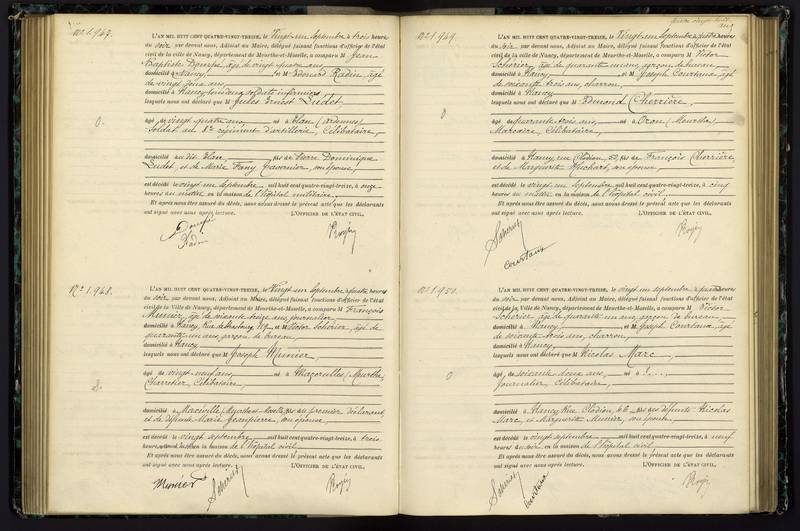 quatre vingt
N° 1.947.
L'AN MIL HUIT CENT QUATRE-VINGT-TREIZE, le Vingt un Septembre à trois heures
du soir par devant nous, Adjoint au Maire, délégué faisant fonctions d'officier de l'état
civil de la ville de Nancy, département de Meurthe-et-Moselle, a comparu M Jean
Baptiste âgé de vingt quatre ans
domicilié à Nancy, et M Edouard Radin, âgé
de vingt deux ans
domicilié à Nancy tous deux soldats infirmiers
lesquels nous ont déclaré que M Jules Ernest Ludet,
0.
âgé de vingt quatre ans, né à Élan (Ardennes)
Soldat au 8e régiment d'artillerie, Célibataire,
domicilié au dit Élan, fils de Pierre Dominique
Ludet, et de Marie Fany son épouse,
est décédé le vingt un Septembre mil huit cent quatre-vingt-treize, à onze
heures du matin en la maison de l'hôpital militaire
Et après nous être assuré du décès, nous avons dressé le présent acte que les déclarants
ont signé avec nous après lecture. L'OFFICIER DE L'ÉTAT CIVIL,
Radin
N° 1.948.
L'AN MIL HUIT CENT QUATRE-VINGT-TREIZE, le Vingt un Septembre à quatre heures
du soir par devant nous, Adjoint au Maire, délégué faisant fonctions d'officier de l'état
civil de la Ville de Nancy, département de Meurthe-et-Moselle, a comparu M François
Munier, âgé de soixante treize ans, journalier
domicilié à Nancy, Rue de Strasbourg et M Victor Schorier, âgé de
quarante un ans, garçon de bureau,
domicilié à Nancy
lesquels nous ont déclaré que M Joseph Munier,
âgé de vingt neuf ans, né à Mazerulles (Meurthe),
Charretier, Célibataire,
domicilié à Maxéville fils du premier déclarant
et de défunte Marie Jeanpierre, son épouse,
est décédé le vingt septembre mil huit cent quatre-vingt-treize, à trois
heures en la maison de l'hôpital civil
Et après nous être assuré du décès, nous avons dressé le présent acte que les déclarants
ont signé avec nous après lecture. L'OFFICIER DE L'ÉTAT CIVIL,
Munier
N° 1.949.
L'AN MIL HUIT CENT QUATRE-VINGT-TREIZE, le Vingt un Septembre à quatre heures
du soir par devant nous, Adjoint au Maire, délégué faisant fonctions d'officier de l'état
civil de la ville de Nancy, département de Meurthe-et-Moselle, a comparu M Victor
Schorier, âgé de quarante un ans, garçon de bureau
domicilié à Nancy, et M Joseph Courtaux, âgé
de soixante trois ans, charron,
domicilié à Nancy
lesquels nous ont déclaré que M Edmond Cherrière,
0
âgé de quarante trois ans, né à Oron (Meurthe)
Célibataire,
domicilié à Nancy, rue Clodion, fils de François Cherrière
et de Marguerite son épouse
est décédé le vingt un Septembre mil huit cent quatre-vingt-treize, à cinq
heures du matin en la maison de l'hôpital civil
Et après nous être assuré du décès, nous avons dressé le présent acte que les déclarants
ont signé avec nous après lecture. L'OFFICIER DE L'ÉTAT CIVIL,
Courtaux
N° 1.950.
L'AN MIL HUIT CENT QUATRE-VINGT-TREIZE, le vingt un septembre à quatre heures
du soir par devant nous, Adjoint au Maire, délégué faisant fonctions d'officier de l'état
civil de la Ville de Nancy, département de Meurthe-et-Moselle, a comparu M Victor
Schorier, âgé de quarante un ans, garçon de bureau,
domicilié à Nancy, et M Joseph Courtaux, âgé
de soixante trois ans, charron
domicilié à Nancy
lesquels nous ont déclaré que M Nicolas Marc,
0
âgé de soixante deux ans, né à
Journalier, Célibataire,
domicilié à Nancy, Rue Clodion, fils des défunts Nicolas
Marc, et Marguerite Munier, son épouse
est décédé le vingt septembre mil huit cent quatre-vingt-treize, à neuf
heures du soir en la maison de l'hôpital civil
Et après nous être assuré du décès, nous avons dressé le présent acte que les déclarants
ont signé avec nous après lecture. L'OFFICIER DE L'ÉTAT CIVIL,
Courtaux